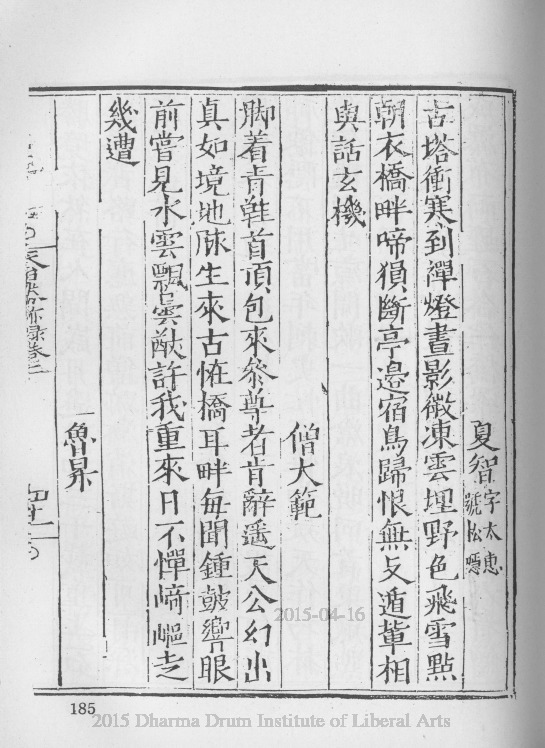 夏智 字太惠 號松隱
古塔衝寒到禪燈晝影微凍雲埋野色飛雪點
朝衣橋畔啼猿斷亭邊宿鳥歸恨無支遁輩相
與話玄機
僧大範
脚着青鞋首頂包來叅尊者肯辭遥天公幻出
真如境地脉生來古怪橋耳畔每聞鍾鼓響眼
前嘗見水雲飄曇猷許我重來日不憚崎嶇走
幾遭
魯昇
2015-04-16
185
2015 Dharma Drum Institute of Liberal Arts